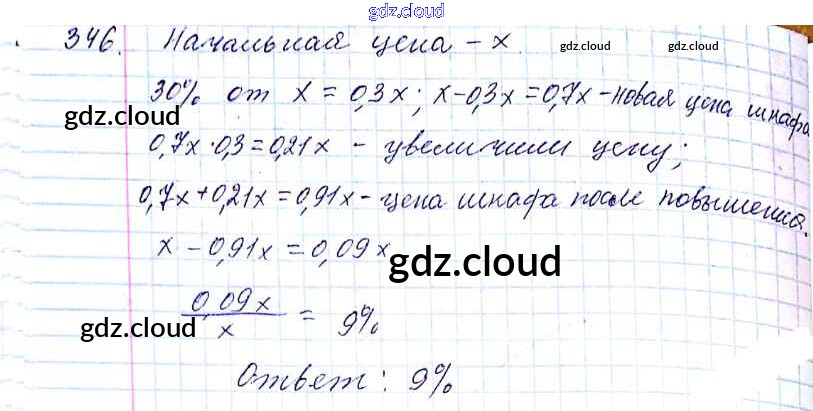 gdz.cloud
346. Начальная цена – x gdz.cloud gdz.cloud
30% от x = 0,3x; x-0,3x=0,7x-новая цена шкафа
gdz.cloud
0,7x·0,3=0,21x - увеличили цену;
0,7x+0,21x=0,91x-цена шкафа после повышения.
x – 0,91x = 0,09x
gdz.cloud
0,09x/x = 9%
gdz.cloud
Ответ: 9%